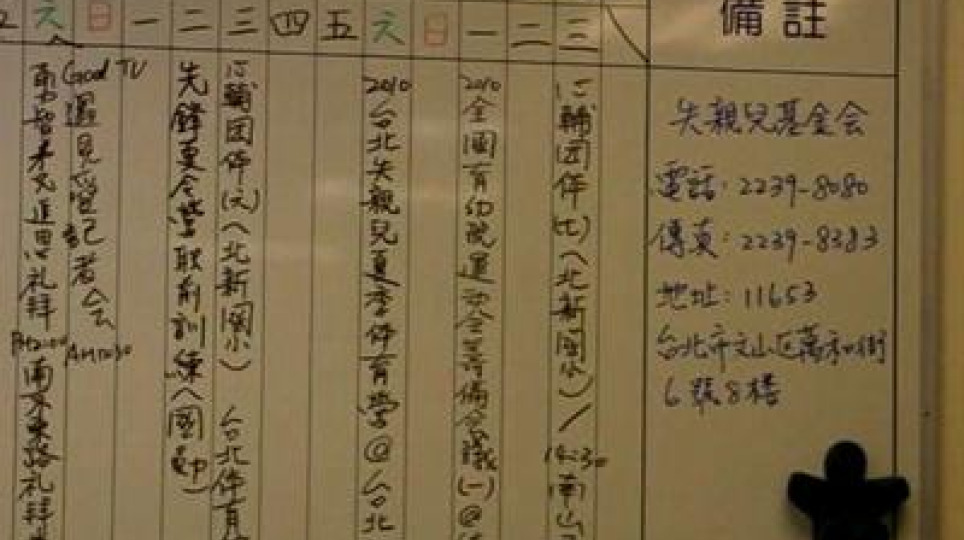 六 日 一 二 三 四 五 六 日 一 二 三
備註
礼拜 南京東路礼拜
God TV 遇見 記者会 AM10:30
先鋒夏令營 前訓練(國
心輔团体(六)(北新國小) 台北体育
2010台北失親兒夏季体育学@台北
2010全國育幼院運动会筹備会議(一)@
心輔团体(七)(北新國小)/14:30南山
失親兒基金会
電話:2239-8080
傳真:2239-8383
地址:11653
台北市文山区萬和街
6號8樓